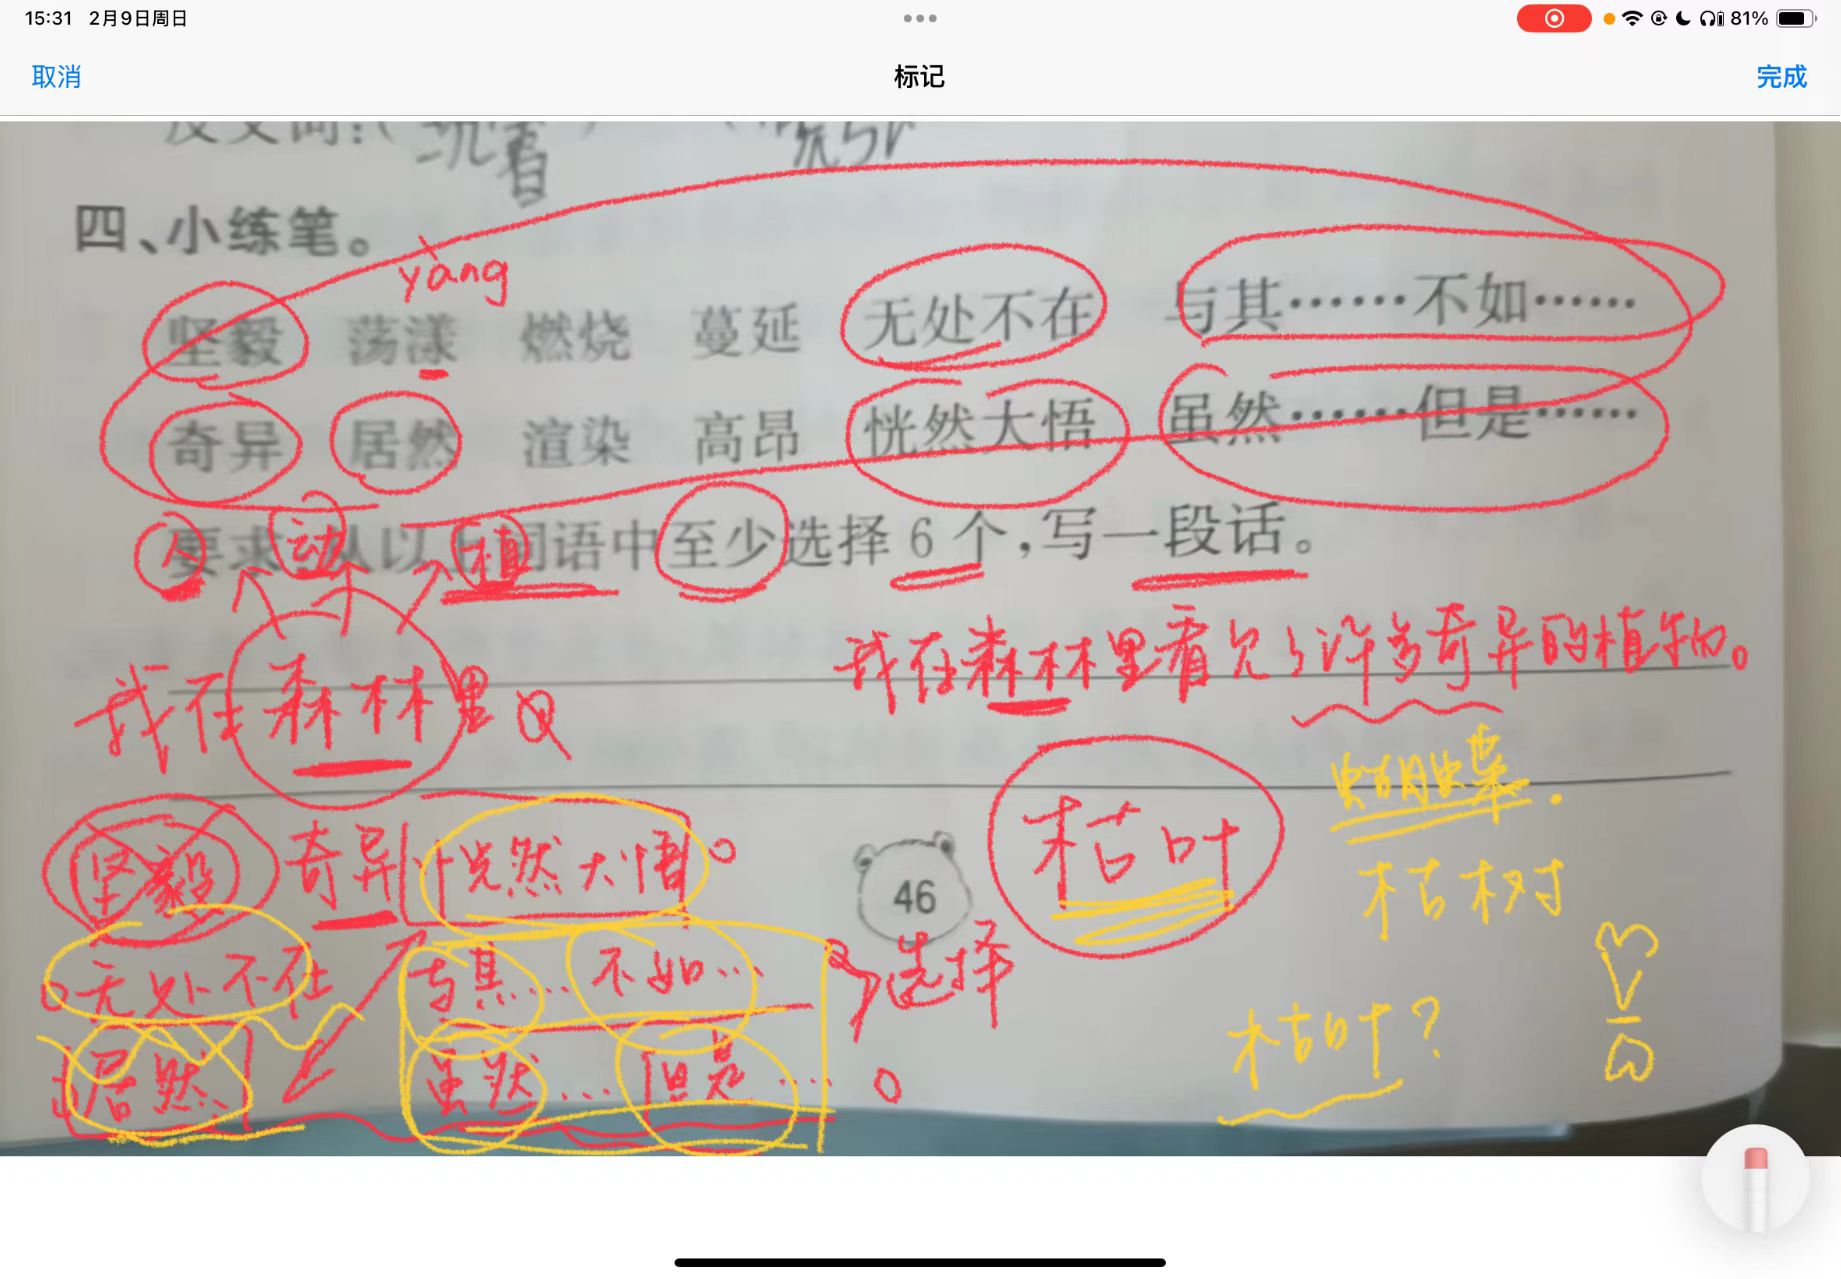 15:31 2月9日周日
81%
取消 标记 完成
反义词:(沉着)
四、小练笔。
yàng
坚毅 荡漾 燃烧 蔓延 无处不在 与其……不如……
奇异 居然 渲染 高昂 恍然大悟 虽然……但是……
要求:从以上词语中至少选择6个,写一段话。
人 动 植
我在森林里看见了许多奇异的植物。
我在森林里
蝴蝶
坚毅 奇异 恍然大悟。
枯叶
枯树
46
无处不在 与其…不如… 选择
枯叶?
居然 虽然…但是…